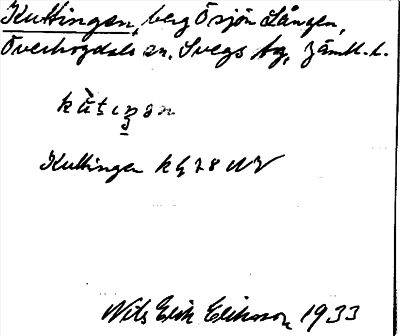 Kuttingen, berg Ö sjön Lången,
Överhogdals sn. Svegs tg, Jämtl. l.
Kuttingen kg 28 NV
Nils Erik Eriksson 1933